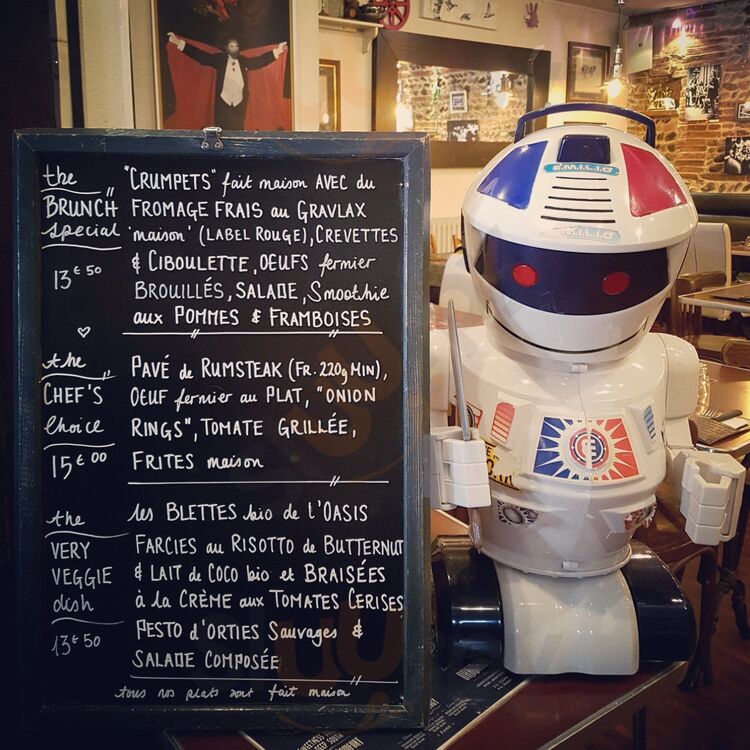 the
BRUNCH
special
13€50
"CRUMPETS" fait maison AVEC du
FROMAGE FRAIS au GRAVLAX
'maison' (LABEL ROUGE), CREVETTES
& CIBOULETTE, OEUFS fermier
BROUILLÉS, SALADE, Smoothie
aux POMMES & FRAMBOISES
the
CHEF'S
choice
15€00
PAVÉ de RUMSTEAK (FR. 220g MIN),
OEUF fermier au PLAT, "ONION
RINGS", TOMATE GRILLÉE,
FRITES maison
the
VERY
VEGGIE
dish
13€50
les BLETTES bio de l'OASIS
FARCIES au RISOTTO de BUTTERNUT
& LAIT de COCO bio et BRAISÉES
à la CRÈME aux TOMATES CERISES,
PESTO d'ORTIES Sauvages &
SALADE COMPOSÉE
tous nos plats sont fait maison
E.M.I.L.I.O
E.M.I.L.I.O